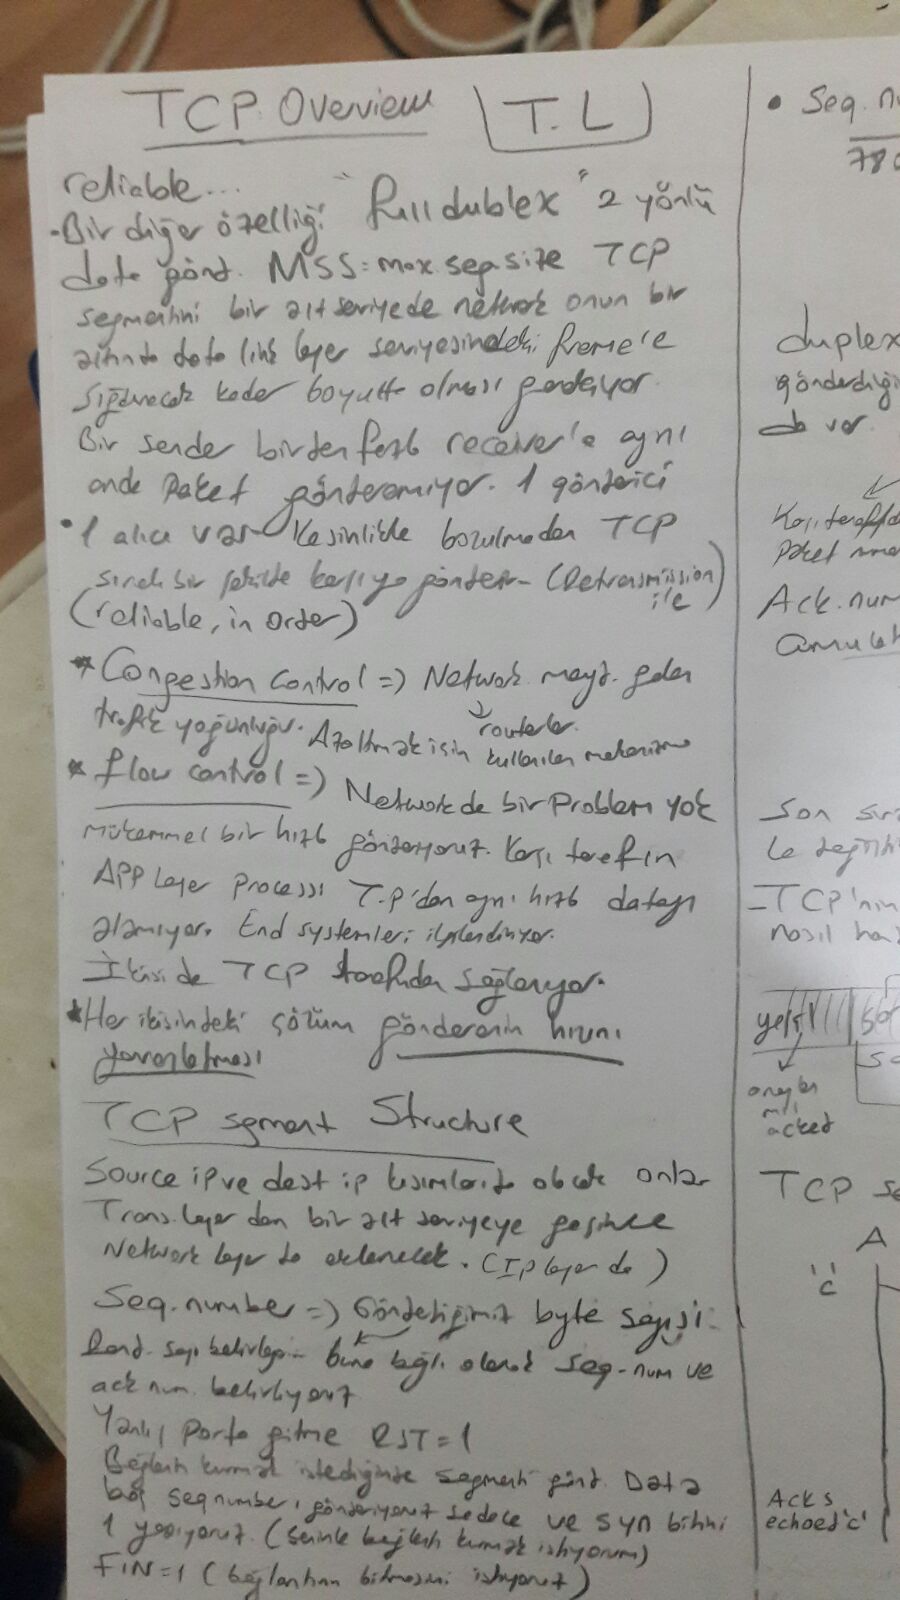 TCP Overview T.L
reliable...
- Bir diğer özelliği "full dublex" 2 yönlü
data gönd. MSS = max. seg. size TCP
segmentini bir alt seviyede network onun bir
altında data link layer seviyesindeki frame'e
sığdıracak kadar boyutta olması gerekiyor.
Bir sender birden fazla receiver'a aynı
anda paket gönderemiyor. 1 gönderici
• 1 alıcı var Kesinlikle bozulmadan TCP
sıralı bir şekilde karşıya gönderir (Retransmission ile)
(reliable, in order)
* Congestion Control => Network meyd. gelen
trafik yoğunluğu. Azaltmak için kullanılan mekanizma
routerlar.
* flow control => Networkde bir Problem yok
mükemmel bir hızla gönderiyoruz. Karşı tarafın
APP layer processi T.P'dan aynı hızla datayı
alamıyor. End systemleri ilgilendiriyor.
İkisi de TCP tarafından sağlanıyor.
* Her ikisindeki çözüm gönderenin hızını
yavaşlatması
TCP segment Structure
Source ip ve dest ip kısımlarıda olacak onlar
Trans. layer dan bir alt seviyeye geçince
Network layer da eklenecek. (IP layer da)
Seq. number => Gönderdiğimiz byte sayısı.
Rand. sayı buna bağlı olarak seq-num ve
ack num. belirliyoruz
Yanlış porta gitme RST=1
Bağlantı kurmak istediğinde segment gönd. Data
boş seq number, gönderiyoruz sadece ve syn bitini
1 yapıyoruz. (Seninle bağlantı kurmak istiyorum)
FIN=1 (bağlantının bitmesini istiyoruz)
• Seq. nu
duplex
gönderdiği
da var.
Karşı
Paket
Ack. num
Son
- TCP'nin
nasıl
acked
TCP se
A
'c'
Acks
echoed 'c'